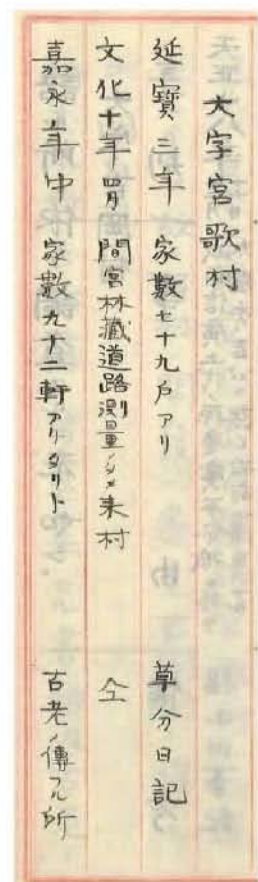 大字宮歌村
延寳三年 家數七十九戸アリ 草分日記
文化十年四月 間宮林藏道路測量ノタメ来村 仝
嘉永年中 家數九十二軒アリタリト 古老ノ傳フル所